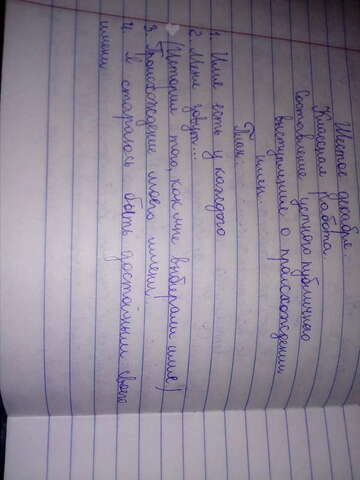 Шестое декабря.
Классная работа.
Составление устного публичного
выступление о происхождении
имен.
План:
1. Имя есть у каждого
2. Меня зовут...
(История того, как мне выбирали имя)
3. Происхождение моего имени.
4. Я стараюсь быть достойным своего
имени